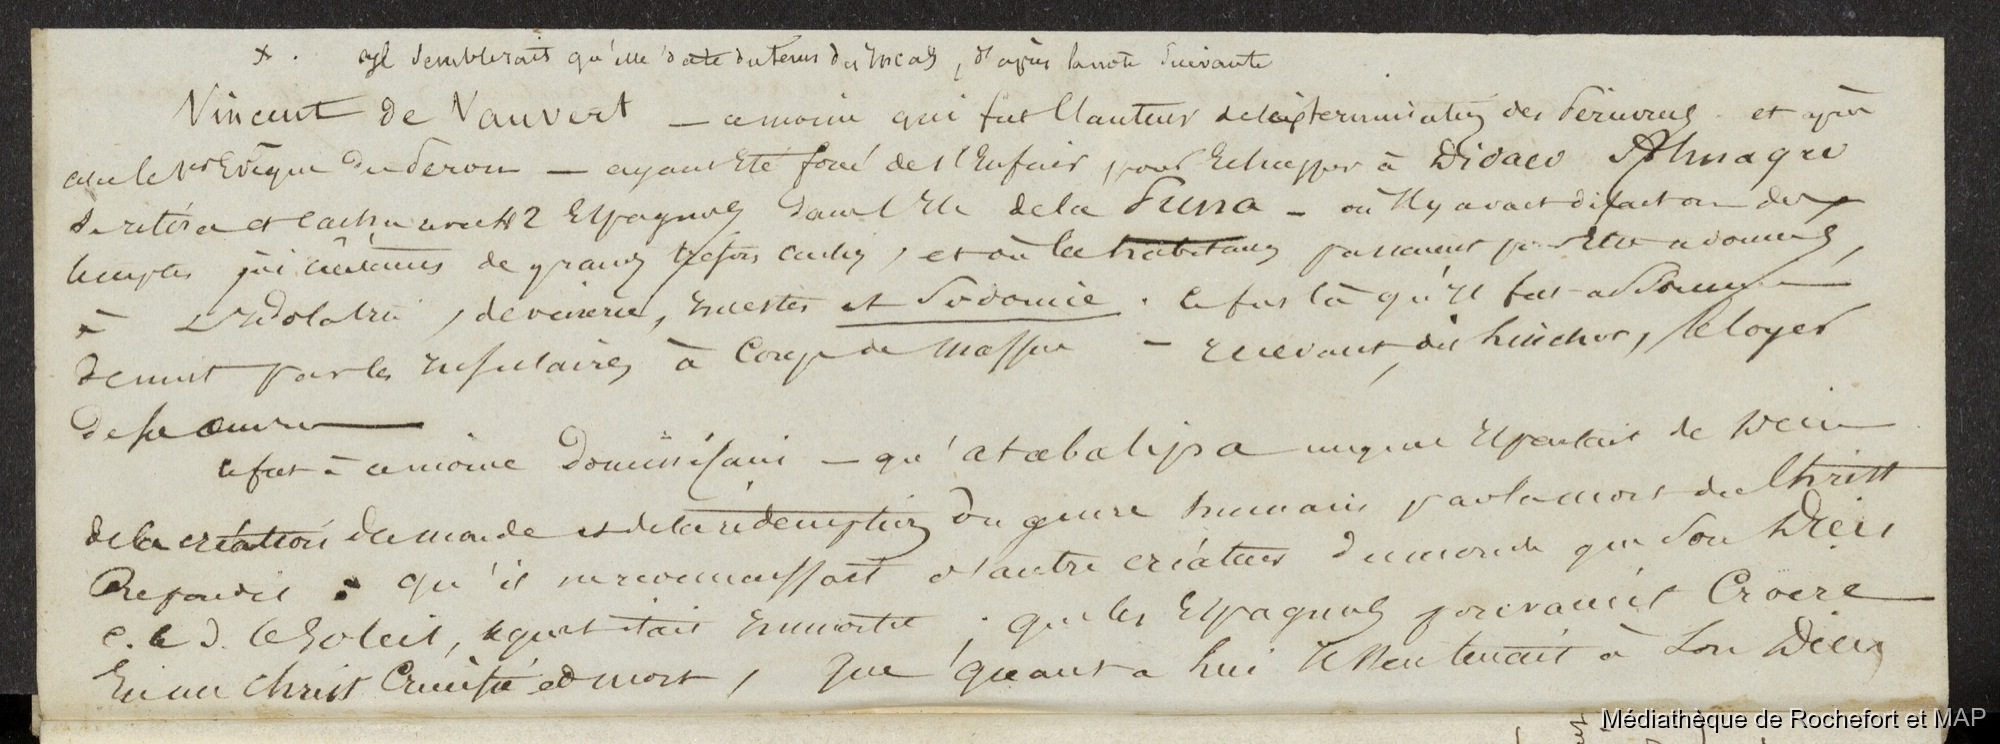 x. il semblerait qu'elle date du tems des Incas, d'après la note suivante
Vincent de Vauvert — ce moine qui fut l'auteur de l'extermination des Péruviens et qui
fut le 1er Evêque du Perou — ayant été forcé de s'enfuir pour échapper à Didaco d'Almagro
se retira et cacha avec 42 Espagnols dans l'Ile de la Puna — où il y avait des
temples de grands trésors cachés, et où les habitans passaient pour être adonnés
à l'idolatrie, devinerie, incestes et Sodomie. ce fut là qu'il fut assommé
de nuit par les insulaires à coups de massue — recevant, dit hinchot, le loyer
de ses œuvres
ce fut à ce moine dominicain — qu'atabalipa de Dieu
de la création du monde et de la rédemption du genre humain par la mort du Christ
Repondit : qu'il ne reconnaissait d'autre créateur du monde que son Dieu
c. à d. le Soleil, lequel était immortel ; que les Espagnols pouvaient croire
en un Christ crucifié et mort, que quant à lui il s'en tenait à son Dieu
Médiathèque de Rochefort et MAP